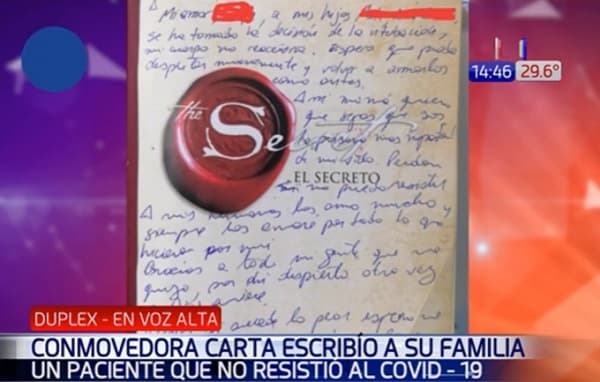 A mi amor a mis hijos
se ha tomado la decisión de la intubación,
mi cuerpo no reacciona. Espero que pueda
despertar nuevamente y volver a amarlos
como antes.
A mi mamá quiero
que sepas que sos
la persona más
de mi vida. Perdón
si no puedo resistir
the Secret
EL SECRETO
A mis hermanos los amo mucho y
siempre los amaré por todo lo que
hicieron por mi
Gracias a toda mi gente que me
quiso, por despierto otra vez
14:46 29.6°
DUPLEX - EN VOZ ALTA
CONMOVEDORA CARTA ESCRIBÍO A SU FAMILIA
UN PACIENTE QUE NO RESISTIÓ AL COVID – 19